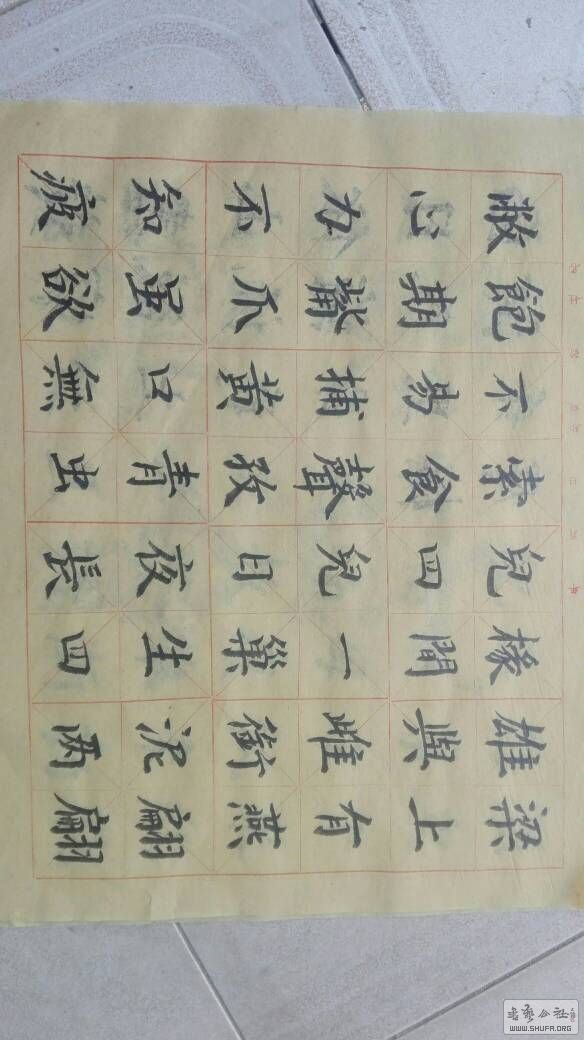 梁上有燕翩翩
雄與雌銜泥两
椽間一巢生四
兒四兒日夜長
索食聲孜青虫
不易捕黄口無
飽期觜爪虽欲
敝心力不知疲
WWW.SHUFA.ORG